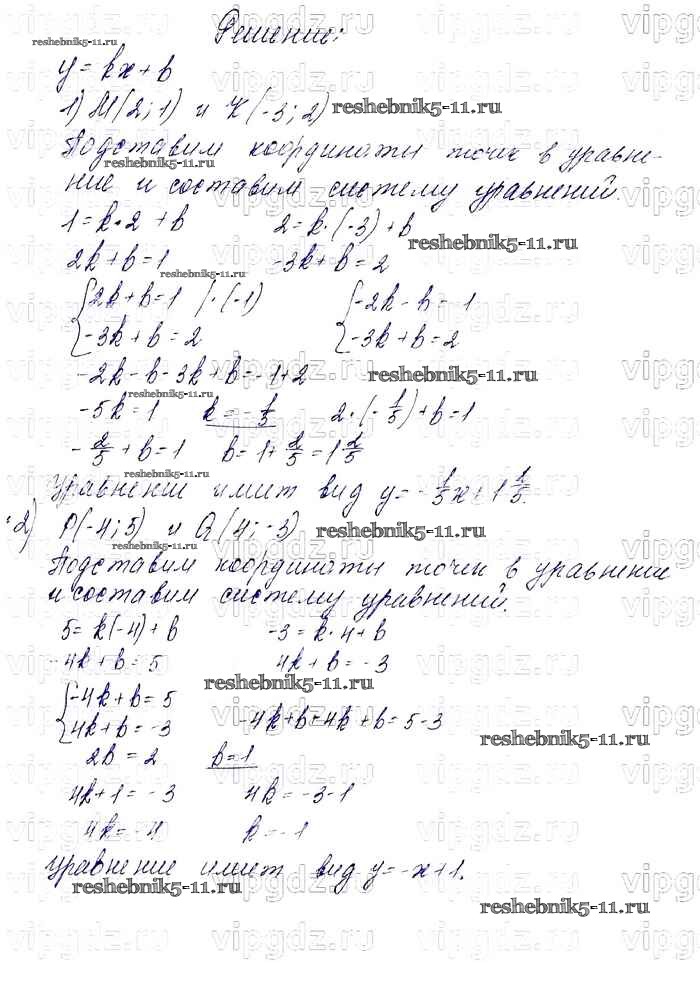 Решение:
reshebnik5-11.ru
y = kx + b
1) M(2; 1) и K(-3; 2) reshebnik5-11.ru
Подставим координаты точек в уравне-
reshebnik5-11.ru
ние и составим систему уравнений.
1 = k·2 + b 2 = k·(-3) + b
reshebnik5-11.ru
2k + b = 1 -3k + b = 2
reshebnik5-11.ru
{2k + b = 1 |·(-1) {-2k - b = -1
-3k + b = 2 -3k + b = 2
-2k - b - 3k + b = -1 + 2 reshebnik5-11.ru
reshebnik5-11.ru
-5k = 1 k = -1/5 2·(-1/5) + b = 1
-2/5 + b = 1 b = 1 + 2/5 = 1 2/5
reshebnik5-11.ru
Уравнение имеет вид y = -1/5x + 1 2/5.
2) P(-4; 5) и Q(4; -3) reshebnik5-11.ru
reshebnik5-11.ru
Подставим координаты точек в уравнение
и составим систему уравнений.
5 = k(-4) + b -3 = k·4 + b
-4k + b = 5 4k + b = -3
reshebnik5-11.ru
{-4k + b = 5
4k + b = -3 -4k + b + 4k + b = 5 - 3
reshebnik5-11.ru
2b = 2 b = 1
4k + 1 = -3 4k = -3 - 1
4k = -4 k = -1
Уравнение имеет вид y = -x + 1.
reshebnik5-11.ru
reshebnik5-11.ru
vipgdz.ru